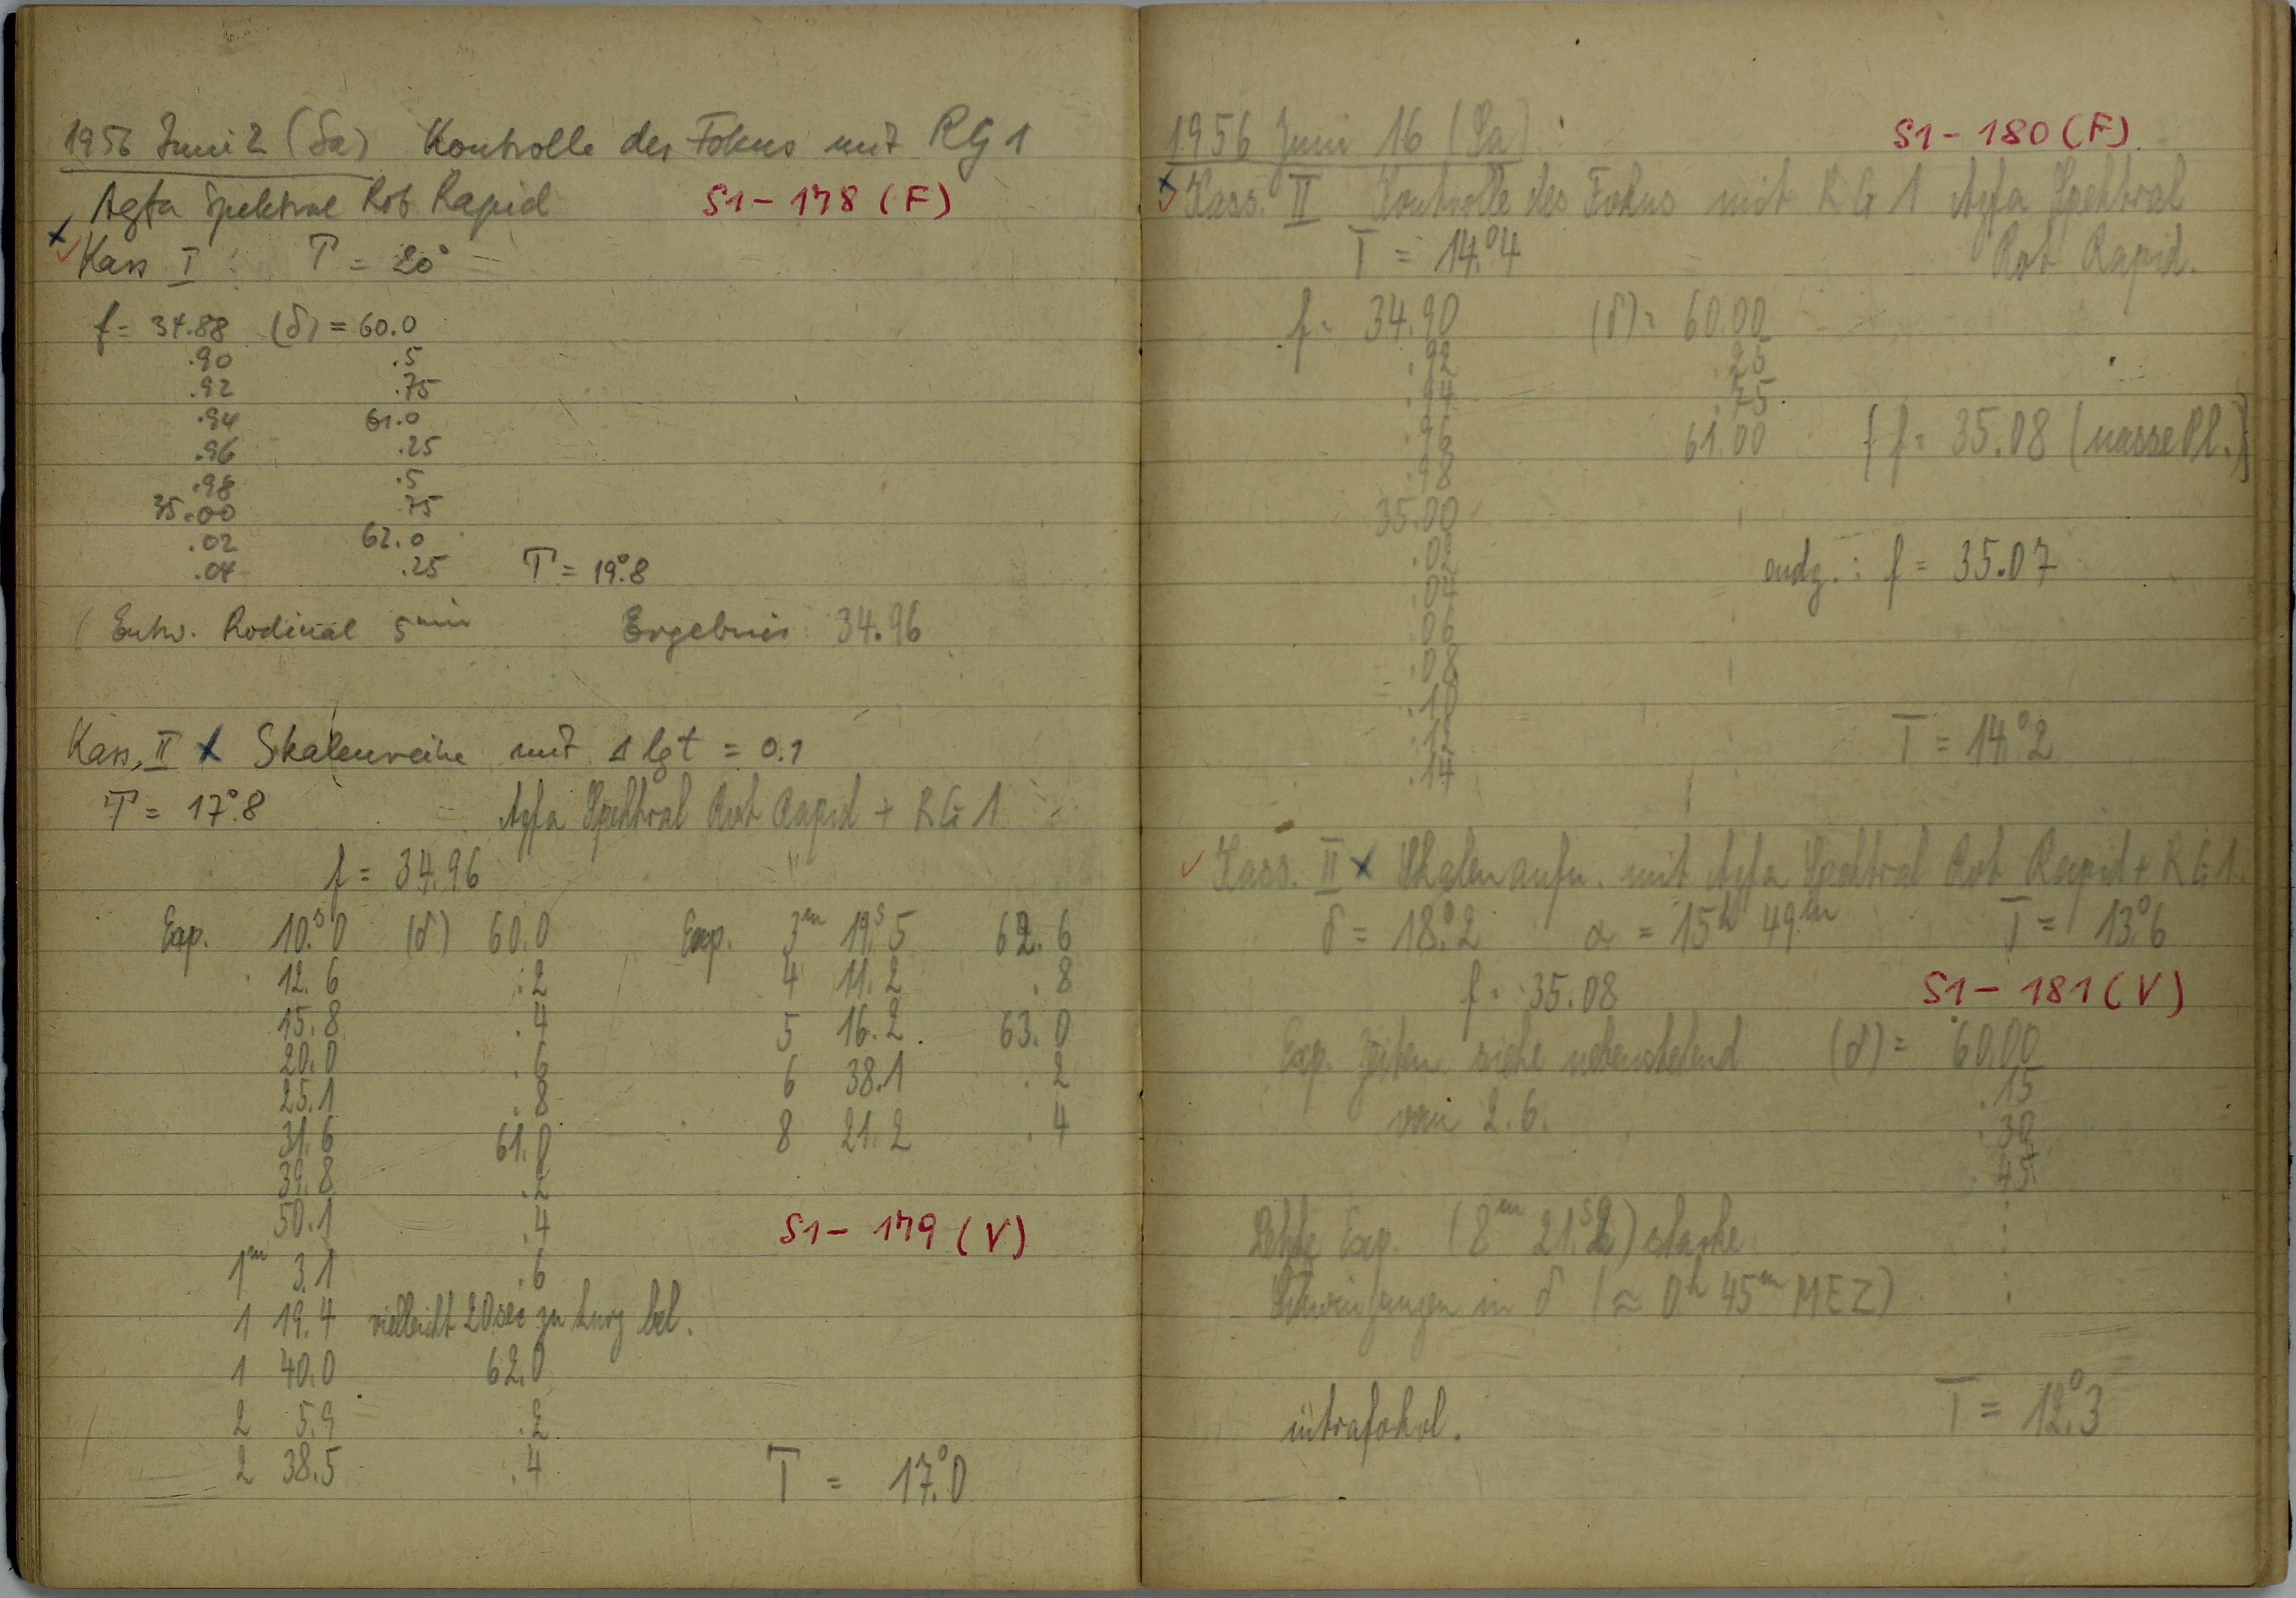 1956 Juni 2 (Sa) Kontrolle des Fokus mit RG 1
Agfa Spektral Rot Rapid S1-178 (F)
x ✓ Kass I : T = 20°
f = 34.88 (δ) = 60.0
.90 .5
.92 .75
.94 61.0
.96 .25
.98 .5
35.00 .75
.02 62.0
.04 .25 T = 19°.8
(Entw. Rodinal 5 min Ergebnis: 34.96
Kass. II x Skalenreihe mit Δ lg t = 0.1
T = 17°.8 Agfa Spektral Rot Rapid + RG 1
f = 34.96
Exp. 10.ˢ0 (δ) 60.0 Exp. 3ᵐ 19.ˢ5 62.6
12.6 .2 4 11.2 .8
15.8 .4 5 16.2 63.0
20.0 .6 6 38.1 .2
25.1 .8 8 21.2 .4
31.6 61.0
39.8 .2
50.1 .4 S1-179 (V)
1ᵐ 3.1 .6
1 19.4 vielleicht 20 sec zu kurz bel.
1 40.0 62.0
2 5.9 .2
2 38.5 .4 T = 17°.0
1956 Juni 16 (Sa) : S1-180 (F)
x ✓ Kass. II Kontrolle des Fokus mit RG 1 Agfa Spektral
T = 14°.4 Rot Rapid.
f = 34.90 (δ) = 60.00
.92 .25
.94 .75
.96 61.00 [f = 35.08 (nasse Pl.)]
.98
35.00
.02 endg. : f = 35.07
.04
.06
.08
.10
.12 T = 14°.2
.14
✓ Kass. II x Skalenaufn. mit Agfa Spektral Rot Rapid + RG 1.
δ = 18°.2 α = 15ʰ 49ᵐ T = 13°.6
f = 35.08 S1-181 (V)
Exp. zeiten siehe nebenstehend (δ) = 60.00
vom 2.6. .15
.30
.45
Letzte Exp. (8ᵐ 21.ˢ2) starke :
Schwingungen in δ (≈ 0ʰ 45ᵐ MEZ) :
intrafokal. T = 12°.3